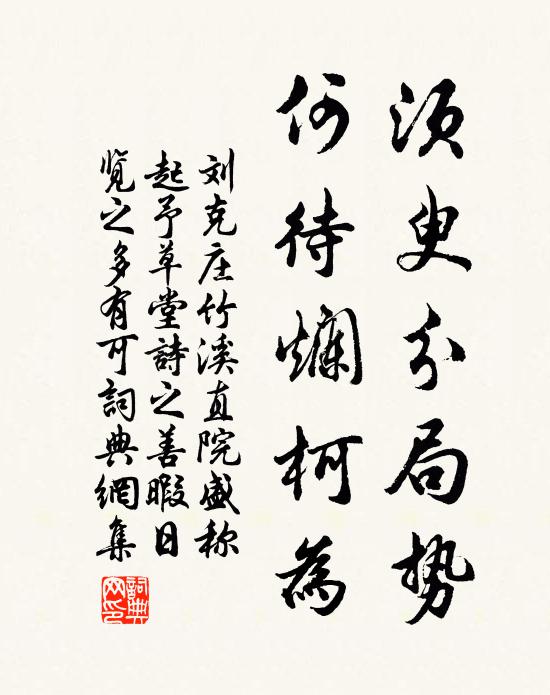 須臾分局势
何待爛柯為
刘克庄竹溪直院盛称
起予草堂詩之善暇日
覧之多有可詞典網集
詞典網印